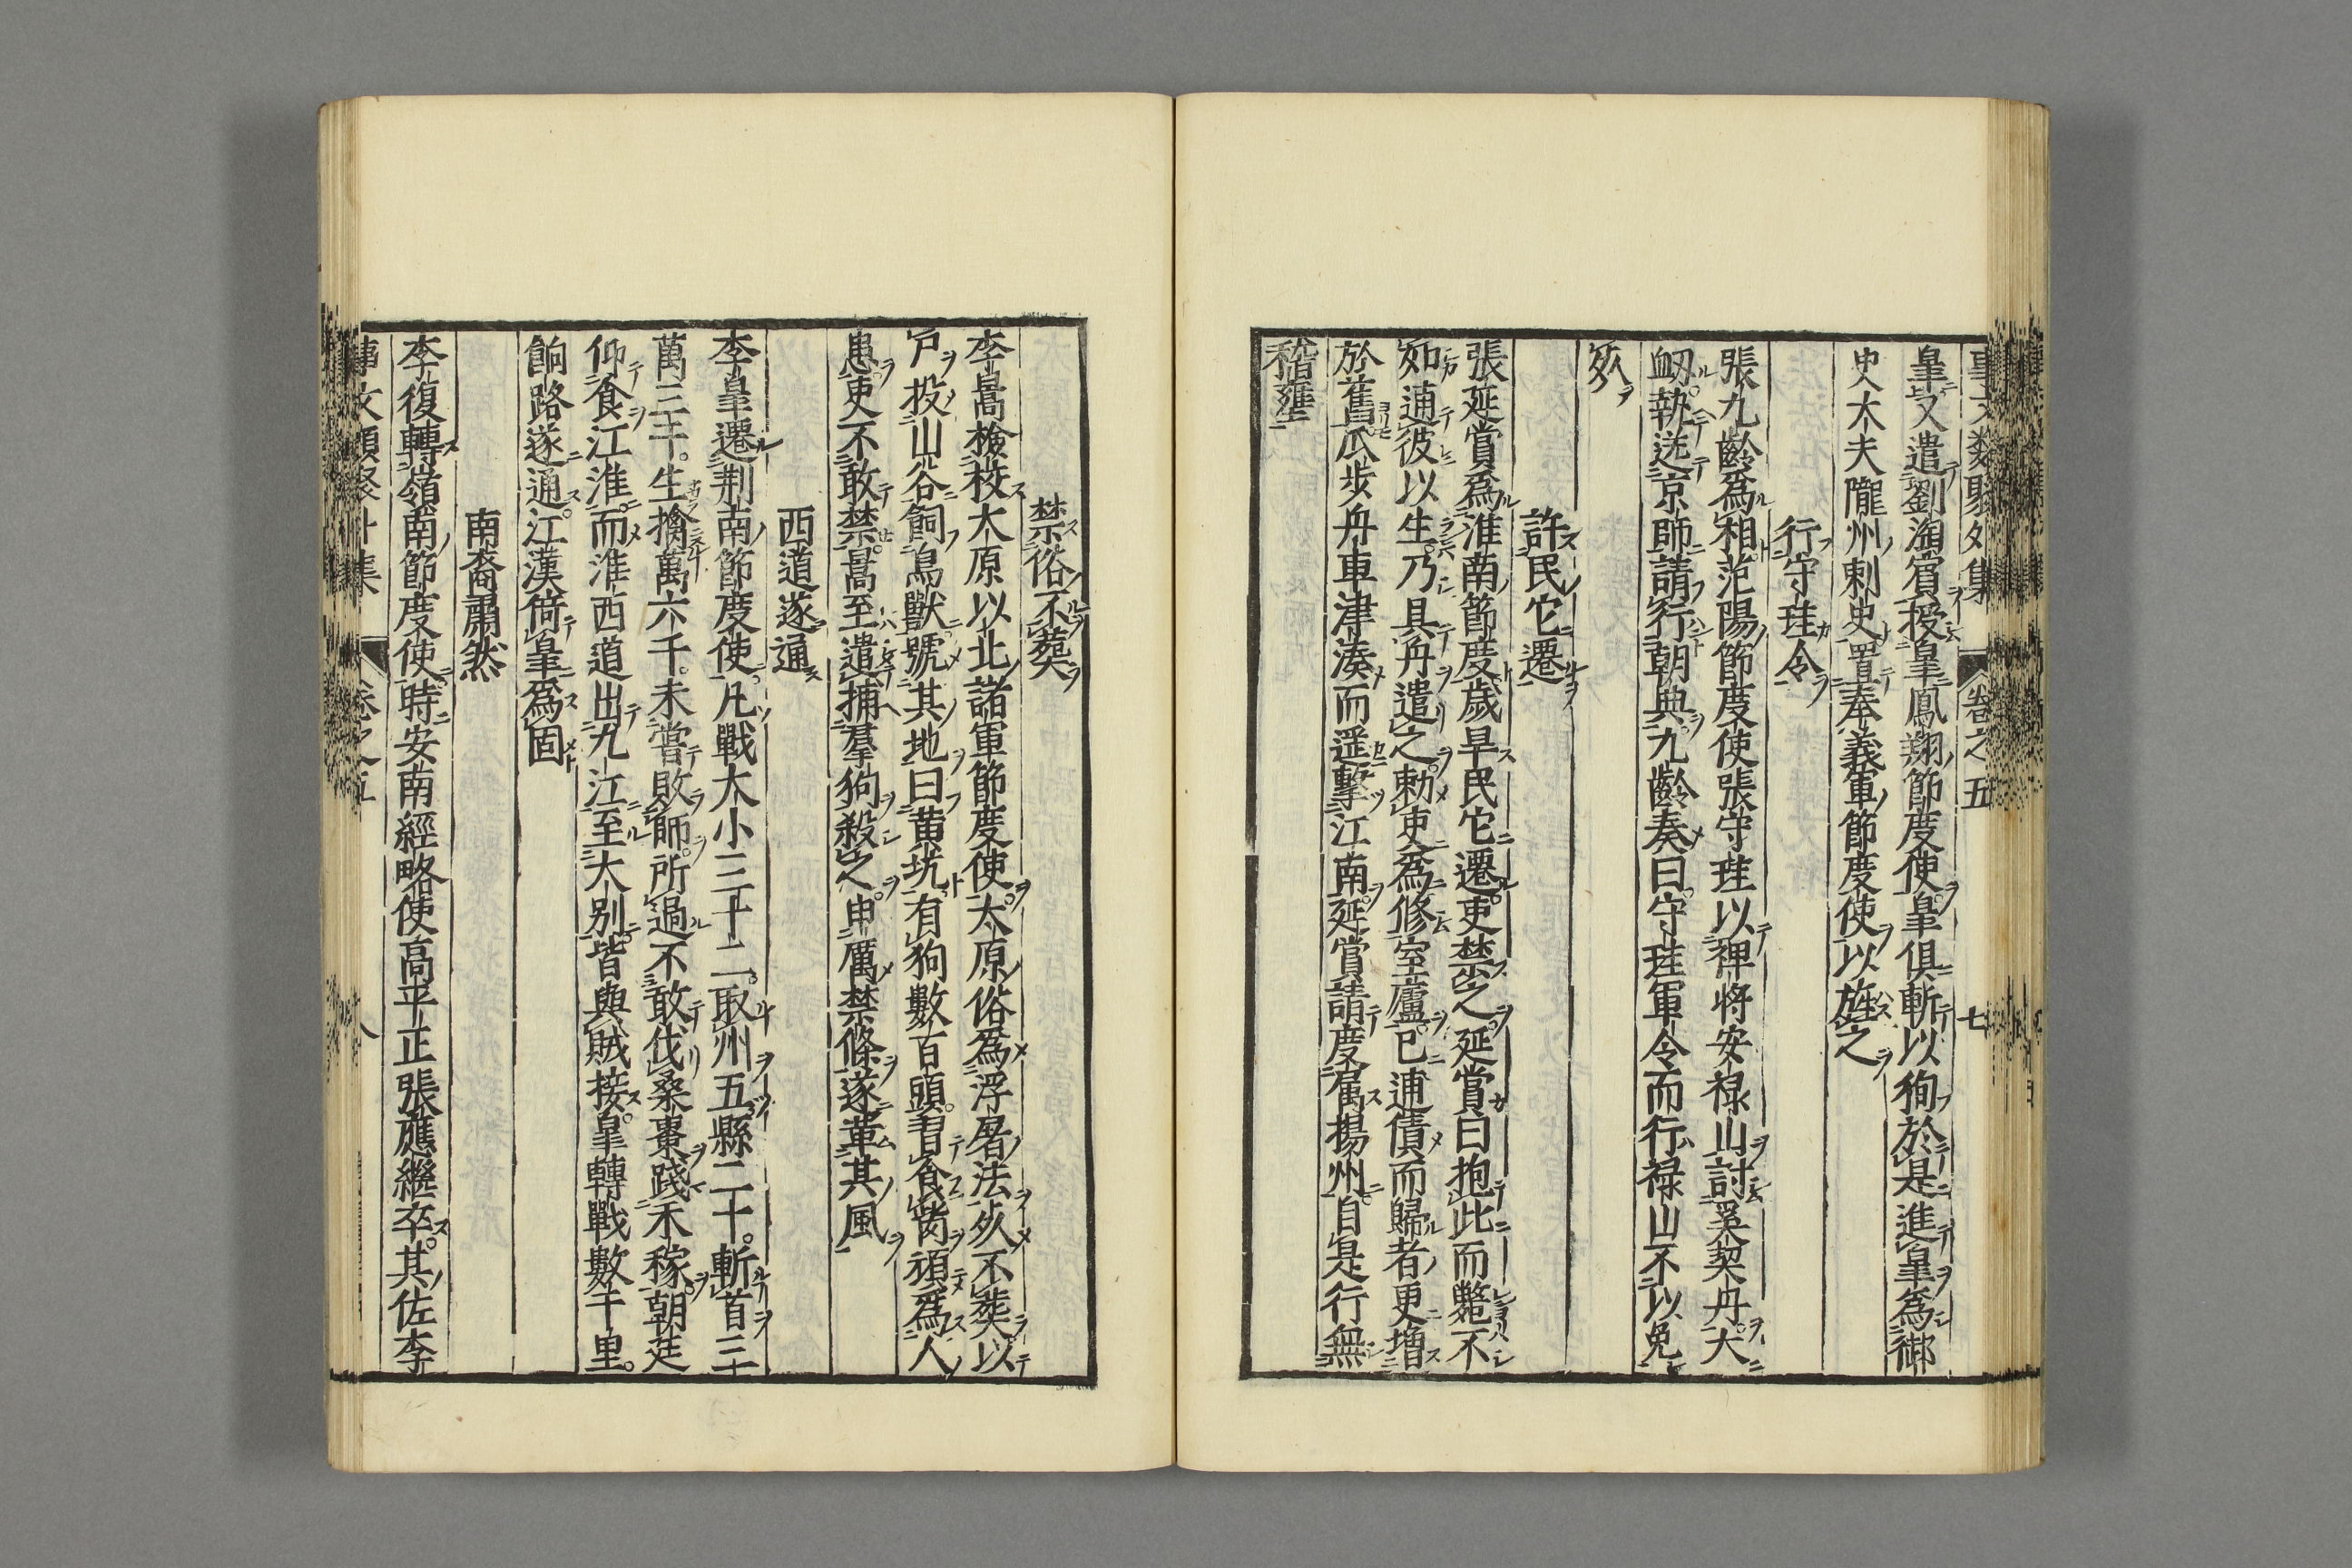 事文類聚外集　卷之五　七
皐又遣劉海賓授皐鳳翔節度使皐俱斬以狥於是進皐爲御
史大夫隴州刺史置奉義軍節度使以旌之
行守珪令
張九齡爲相范陽節度使張守珪以裨将安禄山討奚契丹大
衂執送京師請行朝典九齡奏曰守珪軍令而行禄山不以免
死
許民它遷
張延賞爲淮南節度歲旱民它遷吏禁之延賞曰抱此而斃不
如逋彼以生乃具舟遣之勅吏爲修室廬已逋債而歸者更增
於舊瓜步舟車津湊而遥擊江南延賞請度属揚州自是行無
稽壅
禁俗不葬
李暠檢校太原以北諸軍節度使太原俗爲浮屠法死不葬以
尸投山谷飼鳥獸號其地曰黄坑有狗數百頭習食胔頑爲人
患吏不敢禁暠至遣捕羣狗殺之申厲禁條遂革其風
西道遂通
李皐遷荆南節度使凡戰大小三十二取州五縣二十斬首三
萬三千生擒萬六千未嘗敗師所過不敢伐桑棗踐禾稼朝廷
仰食江淮而淮西道出九江至大别皆與賊接皐轉戰數千里
餉路遂通江漢倚皐爲固
南裔肅然
李復轉嶺南節度使時安南經略使高平正張應繼卒其佐李
事文類聚外集　卷之五　八